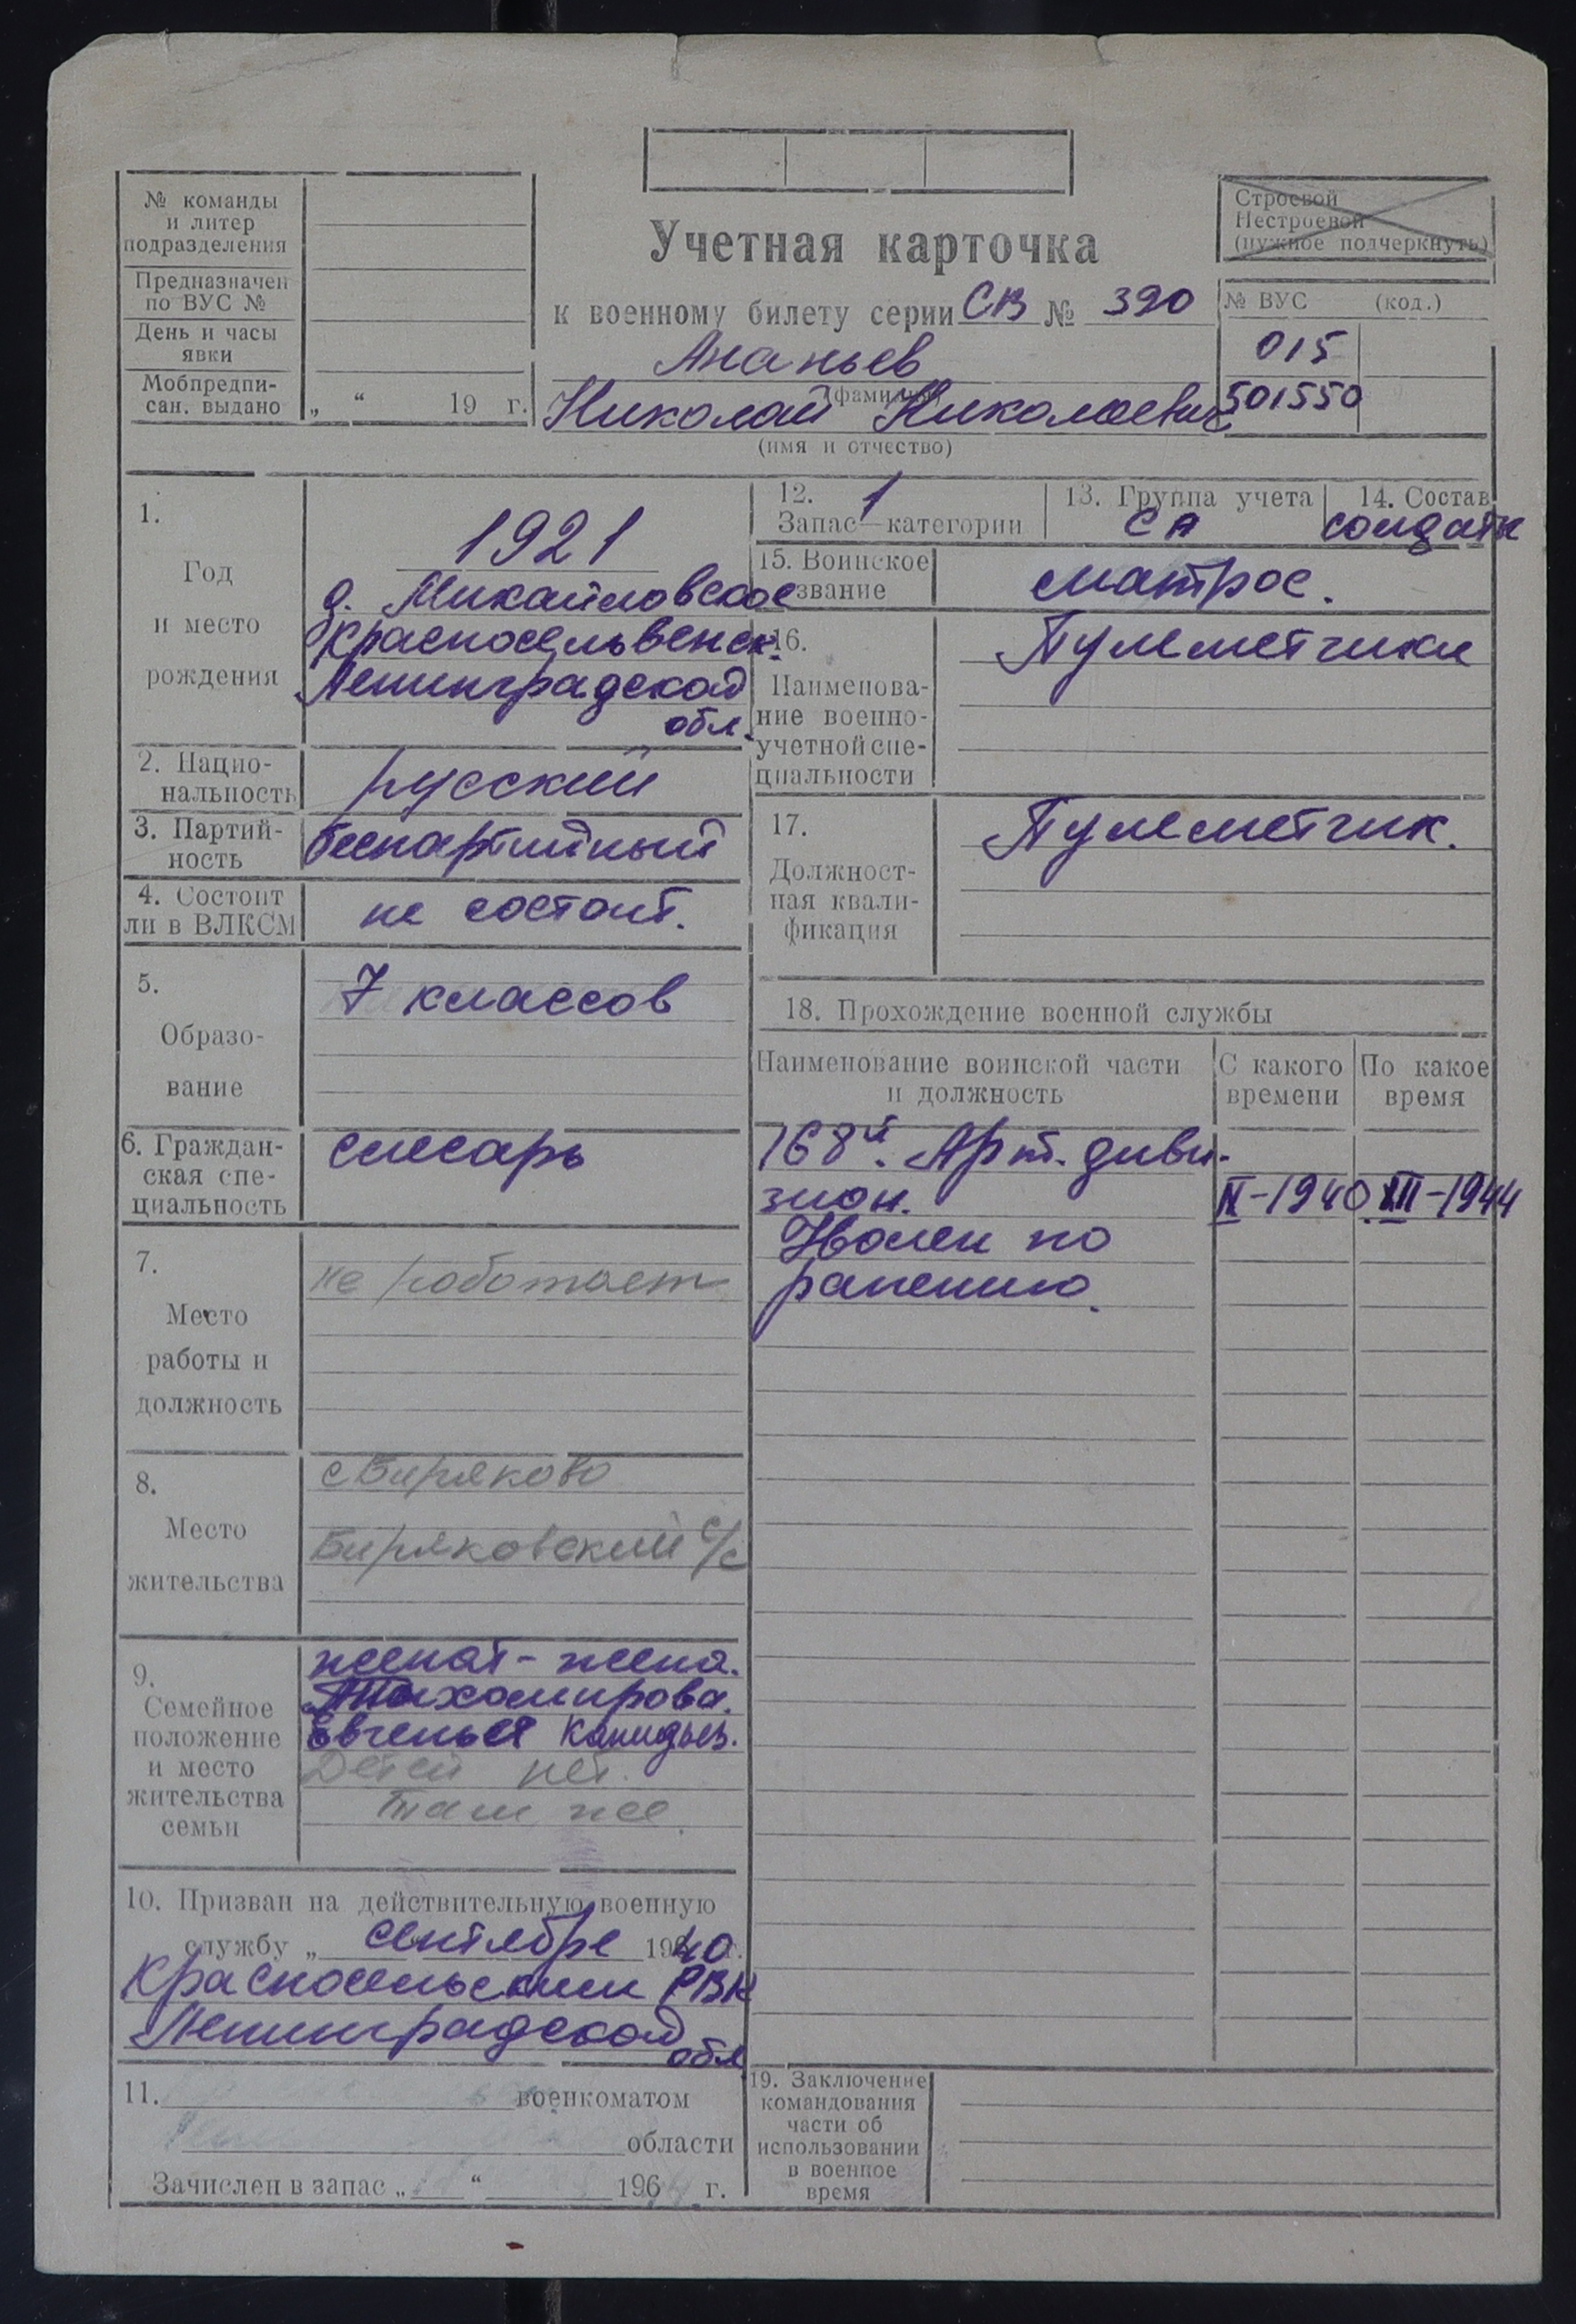 № команды
и литер
подразделения
Предназначен
по ВУС №
День и часы
явки
Мобпредпи-
сан. выдано
„ “ 19 г.
Учетная карточка
к военному билету серии СВ № 390
Ананьев
(фамилия)
Николай Николаевич
(имя и отчество)
Строевой
Нестроевой
(нужное подчеркнуть)
№ ВУС (код.)
015
501550
1.
Год
и место
рождения
1921
д. Михайловское
Красносельвенск.
Ленинградской
обл.
2. Нацио-
нальность
русский
3. Партий-
ность
беспартийный
4. Состоит
ли в ВЛКСМ
не состоит.
5.
Образо-
вание
7 классов
6. Граждан-
ская спе-
циальность
слесарь
7.
Место
работы и
должность
не работает
8.
Место
жительства
с Биряково
Биряковский с/с
9.
Семейное
положение
и место
жительства
семьи
женат - жена.
Тихомирова.
Евгенья
Детей нет.
там же.
10. Призван на действительную военную
службу „ сентябре 1940 г.
Красносельским РВК
Ленинградской
обл
11. военкоматом
области
Зачислен в запас „ “ 196 г.
12. 1
Запас—категории
13. Группа учета
СА
14. Состав
солдаты
15. Воинское
звание
матрос.
16.
Наименова-
ние военно-
учетной спе-
циальности
Пулеметчики
17.
Должност-
ная квали-
фикация
Пулеметчик.
18. Прохождение военной службы
Наименование воинской части
и должность
С какого
времени
По какое
время
168й. Арт. диви-
зион. IX-1940. XII-1944
Уволен по
ранению.
19. Заключение
командования
части об
использовании
в военное
время